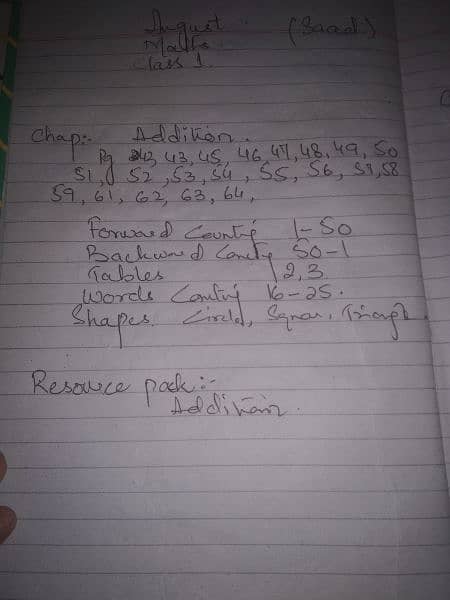 August (Saad)
Maths
Class 1
Chap:- Addition.
Pg 42, 43, 45, 46, 47, 48, 49, 50
51, 52, 53, 54, 55, 56, 57, 58
59, 61, 62, 63, 64,
Forward Countig 1-50
Backward Countig 50-1
Tables 2, 3
Words Countig 16-25.
Shapes. Circle, Square, Triangle.
Resource pack:-
Addition.